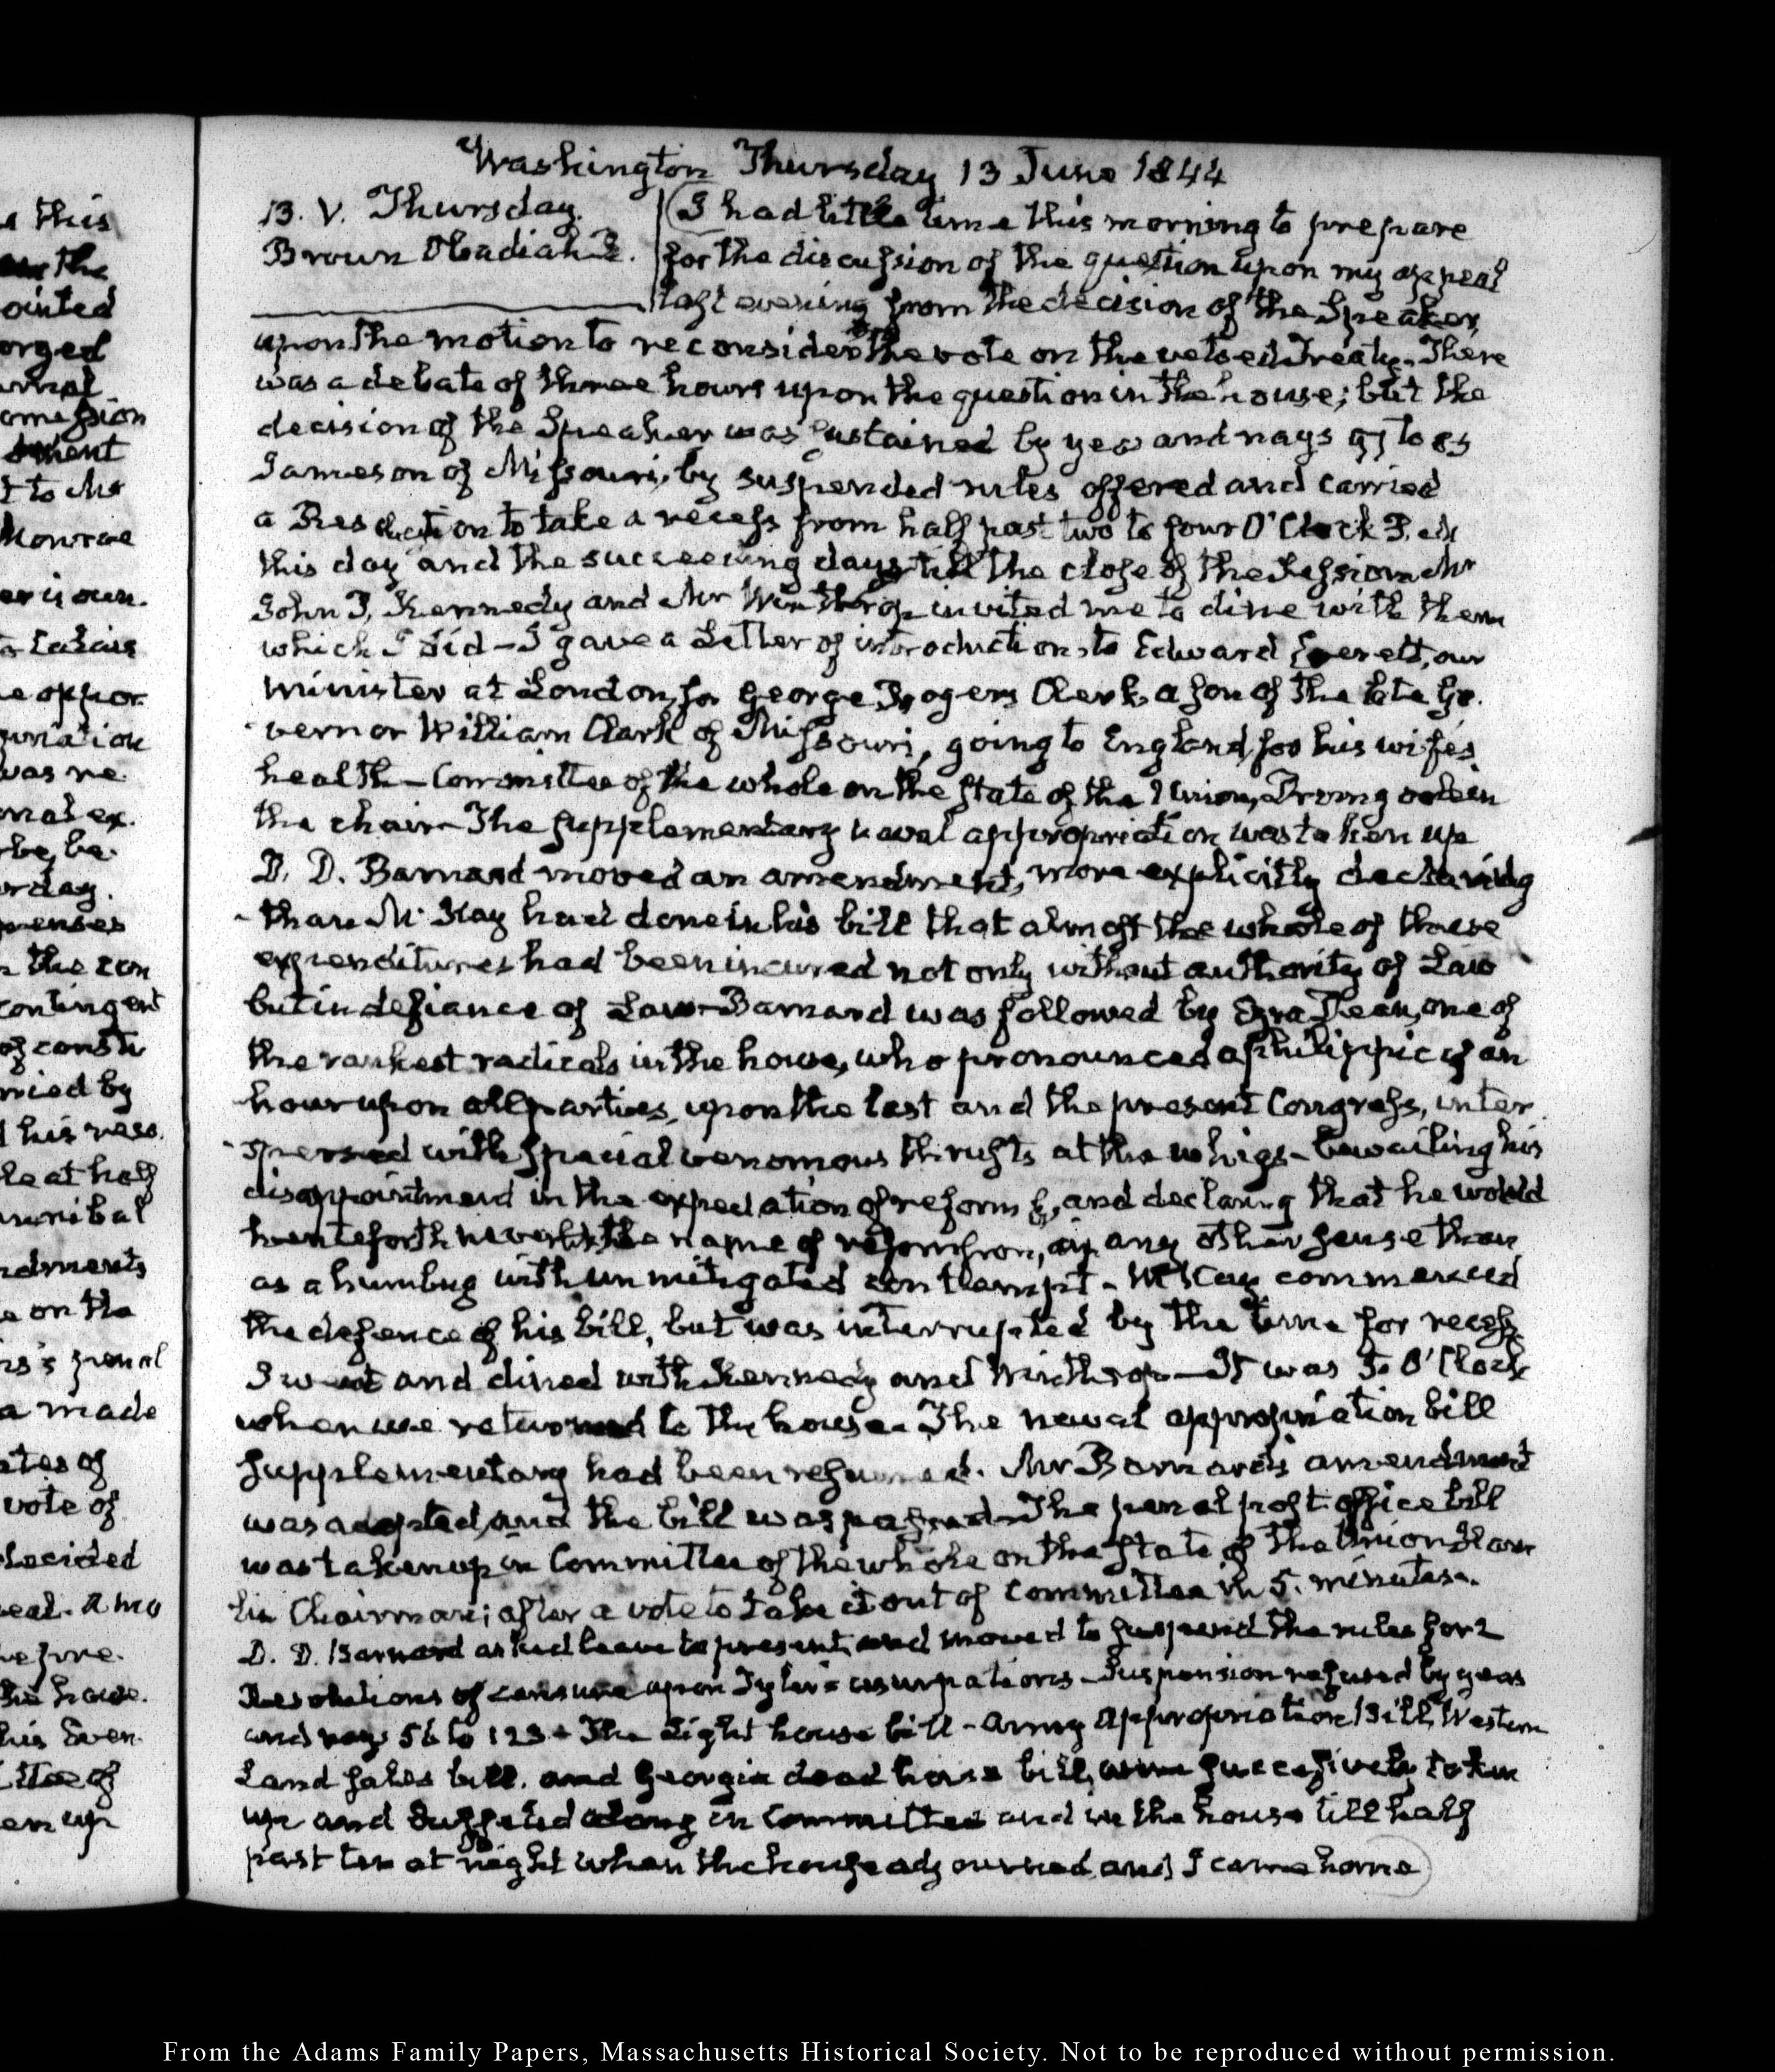 Washington Thursday 13 June 1844
13. V. Thursday.
Brown Obadiah B.
I had little time this morning to prepare
for the discussion of the question upon my appeal
last evening from the decision of the Speaker,
upon the motion to reconsider the vote on the vetoed Treaty. There
was a debate of three hours upon the question in the house; but the
decision of the Speaker was sustained by yeas and nays 97 to 85
Jameson of Missouri, by suspended rules offered and carried
a Resolution to take a recess from half past two to four O'Clock P.M
this day and the succeeding days till the close of the Session Mr
John P. Kennedy and Mr Winthrop invited me to dine with them
which I did – I gave a Letter of introduction to Edward Everett, our
Minister at London, for George Rogers Clark, a son of the late Go-
vernor William Clark of Missouri, going to England for his wife's
health – Committee of the whole on the State of the Union, Dromgoole in
the chair – The Supplementary naval appropriation was taken up
D. D. Barnard moved an amendment, more explicitly declaring
than McKay had done in his bill that almost the whole of these
expenditures had been incurred not only without authority of Law
but in defiance of Law – Barnard was followed by Ezra Dean, one of
the rankest radicals in the house, who pronounced a philippic of an
hour upon all parties, upon the last and the present Congress, inter-
spersed with special venomous thrusts at the whigs – bewailing his
disappointment in the expectation of reform &c, and declaring that he would
henceforth never the name of in any other sense than
as a humbug with unmitigated contempt – McKay commenced
the defence of his bill, but was interrupted by the time for recess
I went and dined with Kennedy and Winthrop – It was 5. O'Clock
when we returned to the house. The naval appropriation bill
Supplementary had been resumed. Mr Barnard's amendment
was adopted, and the bill was passed – The penal post office bill
was taken up in Committee of the whole on the State of the Union Ham-
lin Chairman; after a vote to take it out of Committee in 5. minutes.
D. D. Barnard asked leave to present, and moved to suspend the rules for 2
Resolutions of censure upon Tyler's usurpations – Suspension refused by yeas
and nays 56 to 123 – The Light house bill – Army Appropriation Bill, Western
Land Sales bill. and Georgia dead horse bill, were successively taken
up and along in Committee and in the house till half
past ten at night when the house adjourned and I came home
a this
the
ointed
orged
omission
t to Mr
Monroe
er is own.
e oppor-
was re-
nal ex-
be, be-
rday.
penses
n the con
contingent
of consti
ried by
his reso-
le at half
nnibal
ndments
e on the
's penal
a made
ates of
vote of
decided
eal. A mo
before.
the house.
his Even-
ittee of
en up
From the Adams Family Papers, Massachusetts Historical Society. Not to be reproduced without permission.